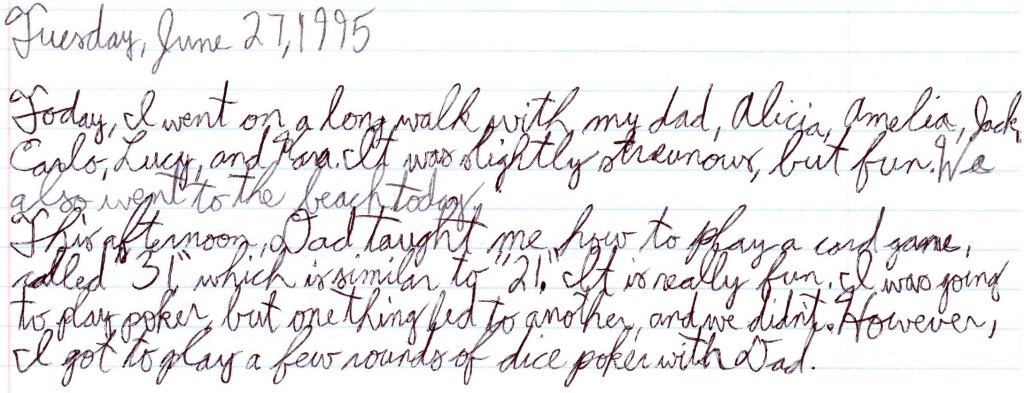 Tuesday, June 27, 1995
Today, I went on a long walk with my dad, Alicia, Amelia, Jack,
Carlo, Lucy, and Kara. It was slightly streunous, but fun. We
also went to the beach today.
This afternoon, Dad taught me how to play a card game,
called "31" which is similar to "21." It is really fun. I was going
to play poker, but one thing led to another, and we didn't. However,
I got to play a few rounds of dice poker with Dad.